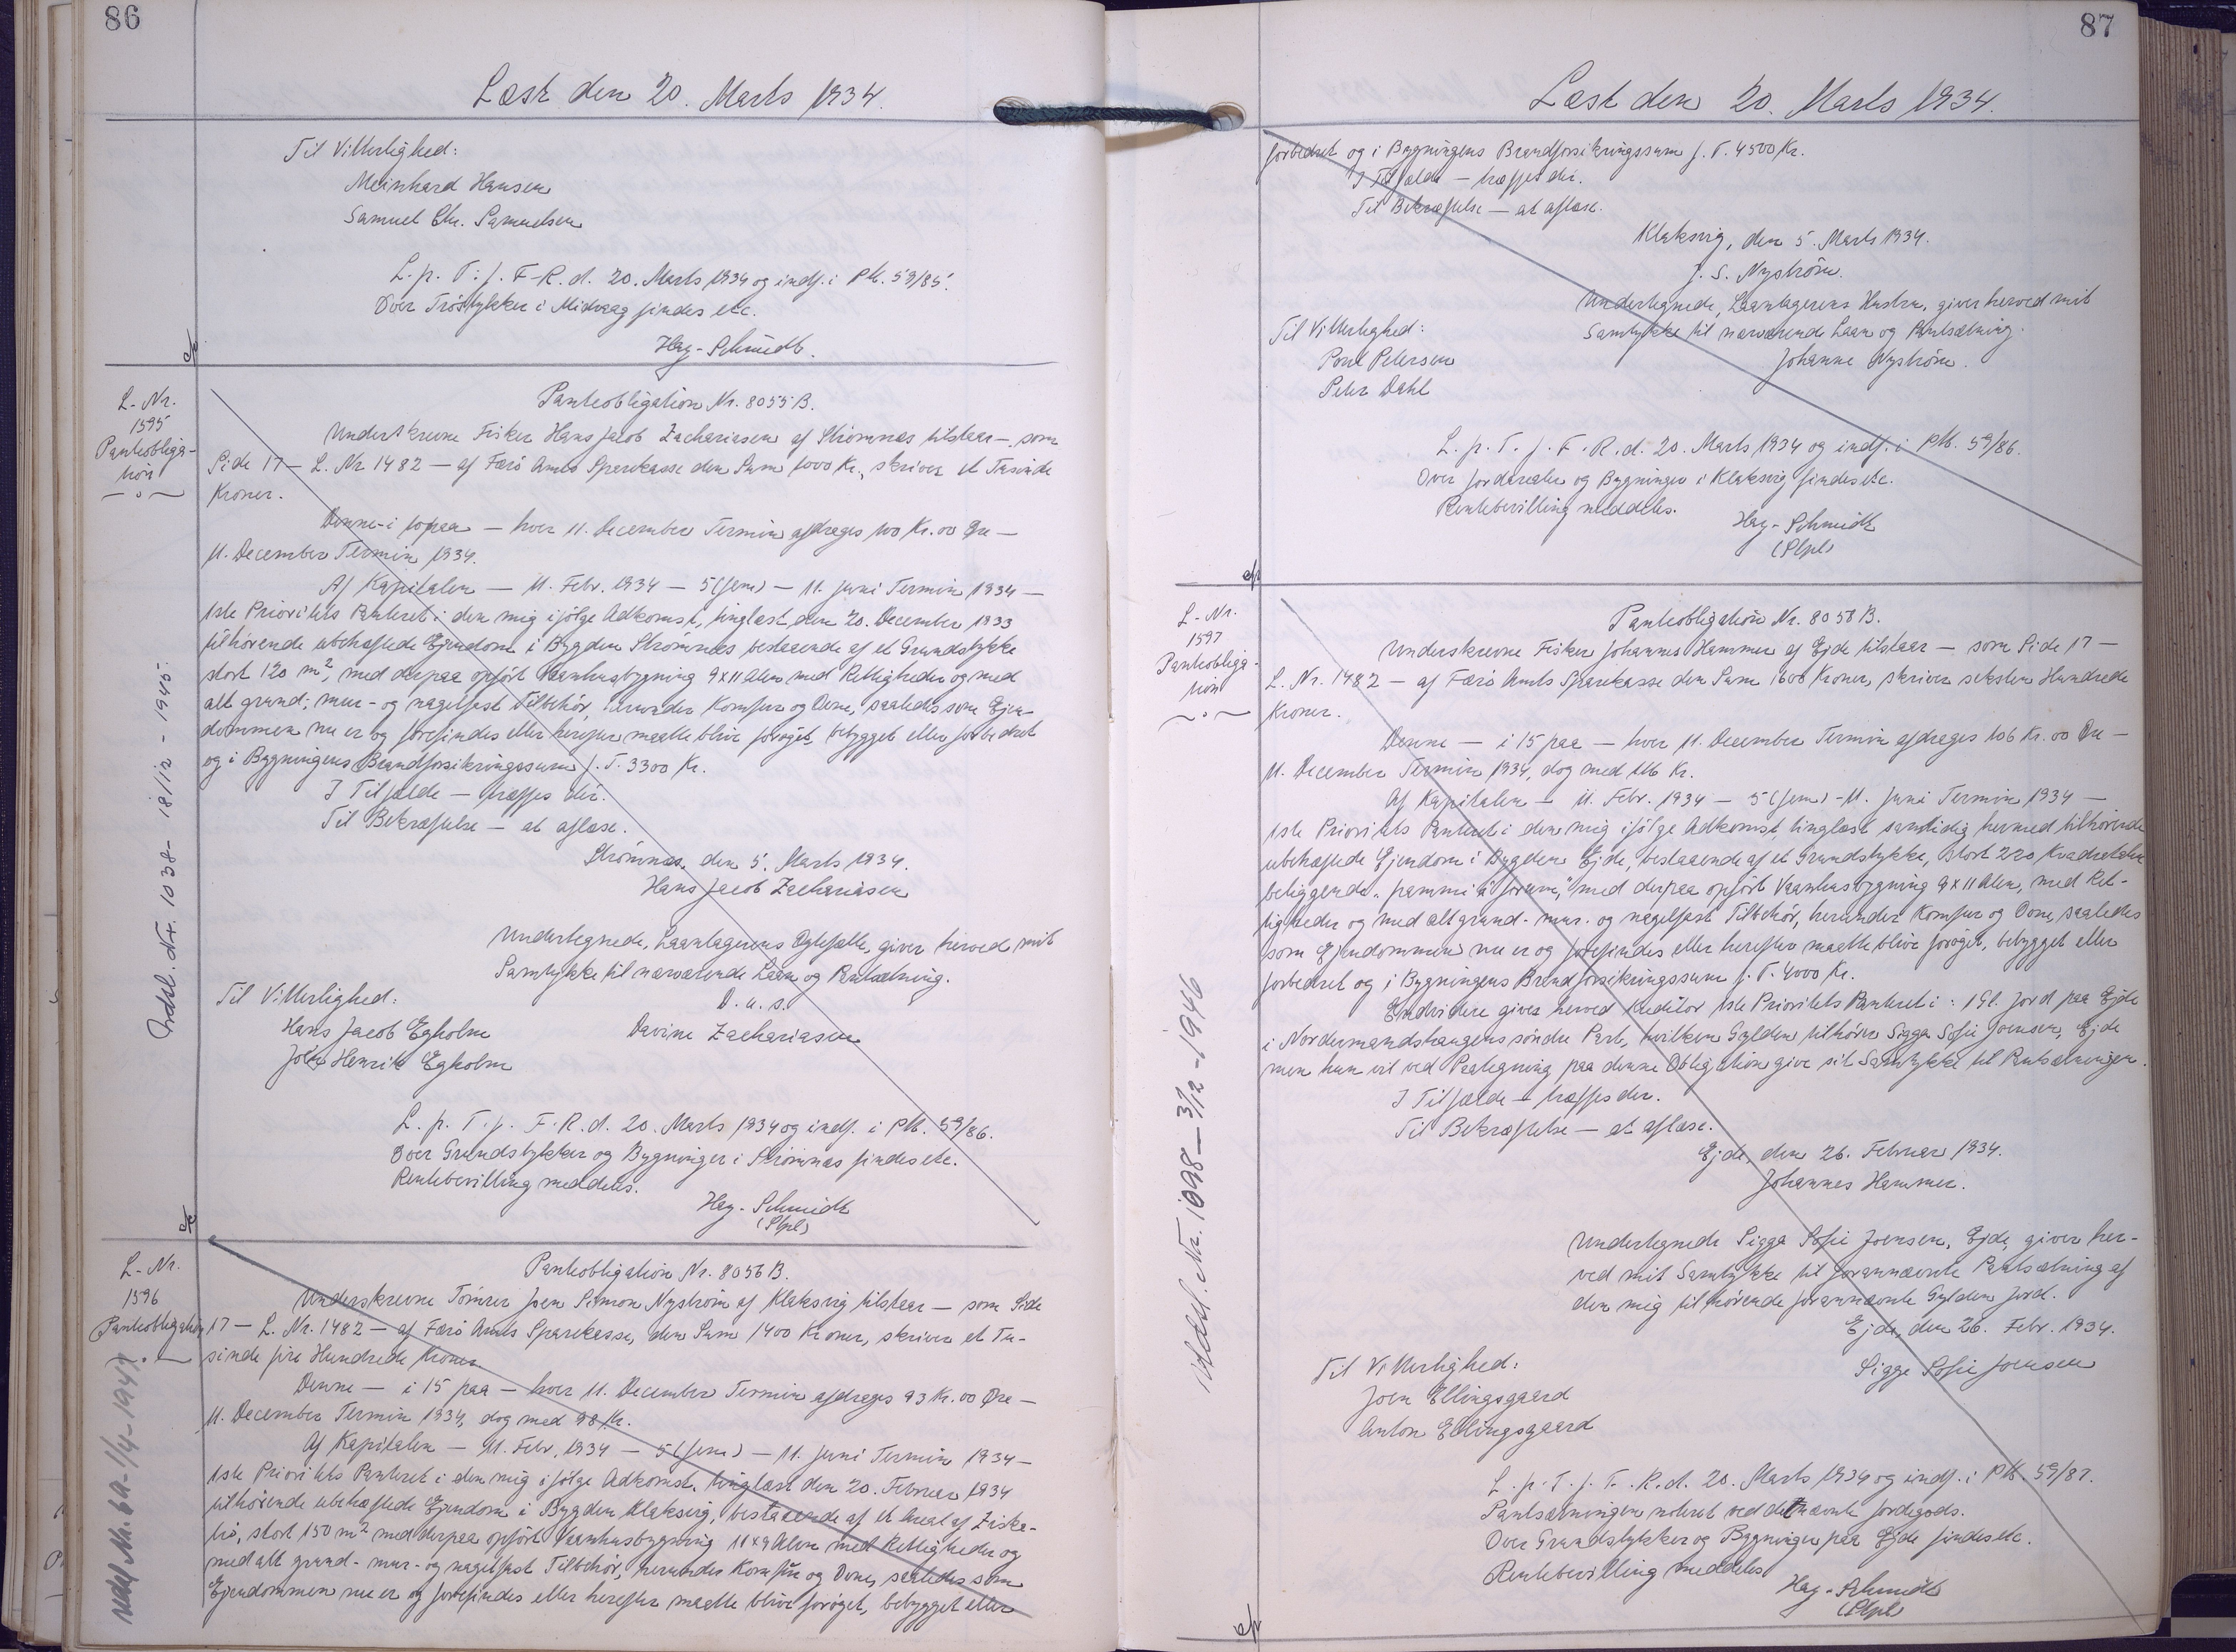 86
Læst den 20. Marts 1934.
Til Vitterlighed:
Meinhard Hansen
Samuel Chr. Samuelsen
L. p. T. f. F. R. d. 20. Marts 1934 og indf. i Pb. 59/85.
Over Tröstykker i Midvaag findes etc.
Hey-Schmidt.
L. Nr.
1595
Panteobliga-
tion
Panteobligation Nr. 8055 B.
Underskrevne Fisker Hans Jacob Zachariasen af Strömnæs tilstaar — som
Side 17 — L. Nr. 1482 — af Færö Amts Sparekasse den Sum 1000 Kr., skriver et Tusinde
Kroner.
Denne - i 10 paa — hver 11. December Termin afdrages 100 Kr. 00 Øre —
11. December Termin 1934.
Af Kapitalen — 11. Febr. 1934 — 5 (fem) — 11. Juni Termin 1934 —
1ste Prioritets Panteret i den mig ifölge Adkomst, tinglæst den 20. December 1933
tilhörende ubehæftede Ejendom i Bygden Strömnæs bestaaende af et Grundstykke
stort 120 m², med derpaa opfört Vaanhusbygning 9 x 11 Alen med Rettigheder og med
alt grund-, mur- og nagelfast Tilbehör, herunder Komfur og Ovne, saaledes som Ejen-
dommen nu er og forefindes eller herefter maatte blive foröget, bebygget eller forbedret
og i Bygningens Brandforsikringssum f. T. 3300 Kr.
I Tilfælde — træffes der.
Til Bekræftelse — at aflæse.
Strömnæs, den 5. Marts 1934.
Hans Jacob Zachariasen
Undertegnede, Laantagerens Ægtefælle, giver herved mit
Samtykke til nærværende Laan og Pantsætning.
Til Vitterlighed:
D. u. s.
Hans Jacob Egholm
Davine Zachariasen
Jóen Henrik Egholm
L. p. T. f. F. R. d. 20. Marts 1934 og indf. i Pb. 59/86.
Over Grundstykker og Bygninger i Strömnæs findes etc.
Rentebevilling meddeles.
Hey-Schmidt
(Stpl)
Udsl. Nr. 1038 - 18/12 - 1945.
L. Nr.
1596
Panteobligation
Panteobligation Nr. 8056 B.
Underskrevne Tömrer Joen Simon Nyström af Klaksvig tilstaar — som Side
17 — L. Nr. 1482 — af Færö Amts Sparekasse, den Sum 1400 Kroner, skriver et Tu-
sinde fire Hundrede Kroner.
Denne — i 15 paa — hver 11. December Termin afdrages 93 Kr. 00 Øre —
11. December Termin 1934, dog med 98 Kr.
Af Kapitalen — 11. Febr. 1934 — 5 (fem) — 11. Juni Termin 1934 —
1ste Prioritets Panteret i den mig ifölge Adkomst, tinglæst den 20. Februar 1934
tilhörende ubehæftede Ejendom i Bygden Klaksvig, bestaaende af et Areal af Ziska-
trö, stort 150 m² med derpaa opfört Vaanhusbygning 11 x 9 Alen med Rettigheder og
med alt grund- mur- og nagelfast Tilbehör, herunder Komfur og Ovne, saaledes som
Ejendommen nu er og forefindes eller herefter maatte blive foröget, bebygget eller
Udsl. Nr. 60 - 1/4 - 1947
87
Læst den 20. Marts 1934.
forbedret og i Bygningens Brandforsikringssum f. T. 4500 Kr.
I Tilfælde — træffes der.
Til Bekræftelse — at aflæse.
Klaksvig, den 5. Marts 1934.
J. S. Nyström.
Undertegnede, Laantagerens Hustru, giver herved mit
Til Vitterlighed:
Samtykke til nærværende Laan og Pantsætning.
Poul Petersen
Johanne Nyström.
Peter Dahl
L. p. T. f. F. R. d. 20. Marts 1934 og indf. i Pb. 59/86.
Over Jordarealer og Bygninger i Klaksvig findes etc.
Rentebevilling meddeles.
Hey-Schmidt
(Stpl)
L. Nr.
1597
Panteobliga-
tion
Panteobligation Nr. 8058 B.
Underskrevne Fisker Johannes Hammer af Ejde tilstaar — som Side 17 —
L. Nr. 1482 — af Færö Amts Sparekasse den Sum 1600 Kroner, skriver seksten Hundrede
Kroner.
Denne — i 15 paa — hver 11. December Termin afdrages 106 Kr. 00 Øre —
11. December Termin 1934, dog med 116 Kr.
Af Kapitalen — 11. Febr. 1934 — 5 (fem) - 11. Juni Termin 1934 —
1ste Prioritets Panteret i den mig ifölge Adkomst tinglæst samtidig hermed tilhörende
ubehæftede Ejendom i Bygden Ejde, bestaaende af et Grundstykke, stort 220 Kvadratalen
beliggende med derpaa opfört Vaanhusbygning 9 x 11 Alen, med Ret-
tigheder og med alt grund- mur- og nagelfast Tilbehör, herunder Komfur og Ovne, saaledes
som Ejendommen nu er og forefindes eller herefter maatte blive foröget, bebygget eller
forbedret og i Bygningens Brandforsikringssum f. T. 4000 Kr.
Endvidere gives herved Kreditor 1ste Prioritets Panteret i: 1 Gl. Jord paa Ejde
i Nordermandshaugens söndre Part, hvilken Gylden tilhörer Sigga Sofie Joensen, Ejde
men hun vil ved Paategning paa denne Obligation give sit Samtykke til Pantsætningen.
I Tilfælde — træffes der.
Til Bekræftelse — at aflæse.
Ejde, den 26. Februar 1934.
Johannes Hammer.
Undertegnede Sigga Sofie Joensen, Ejde, giver her-
ved mit Samtykke til forannævnte Pantsætning af
den mig tilhörende forannævnte Gylden Jord.
Ejde, den 26. Febr. 1934.
Til Vitterlighed:
Sigga Sofie Joensen
Joen Ellingsgaard
Anton Ellingsgaard
L. p. T. f. F. R. d. 20. Marts 1934 og indf. i Pb. 59/87.
Pantsætningen noteret ved det nævnte Jordegods.
Over Grundstykker og Bygninger paa Ejde findes etc.
Rentebevilling meddeles
Hey-Schmidt
(Stpl)
Udsl. Nr. 1098 - 3/12 - 1946